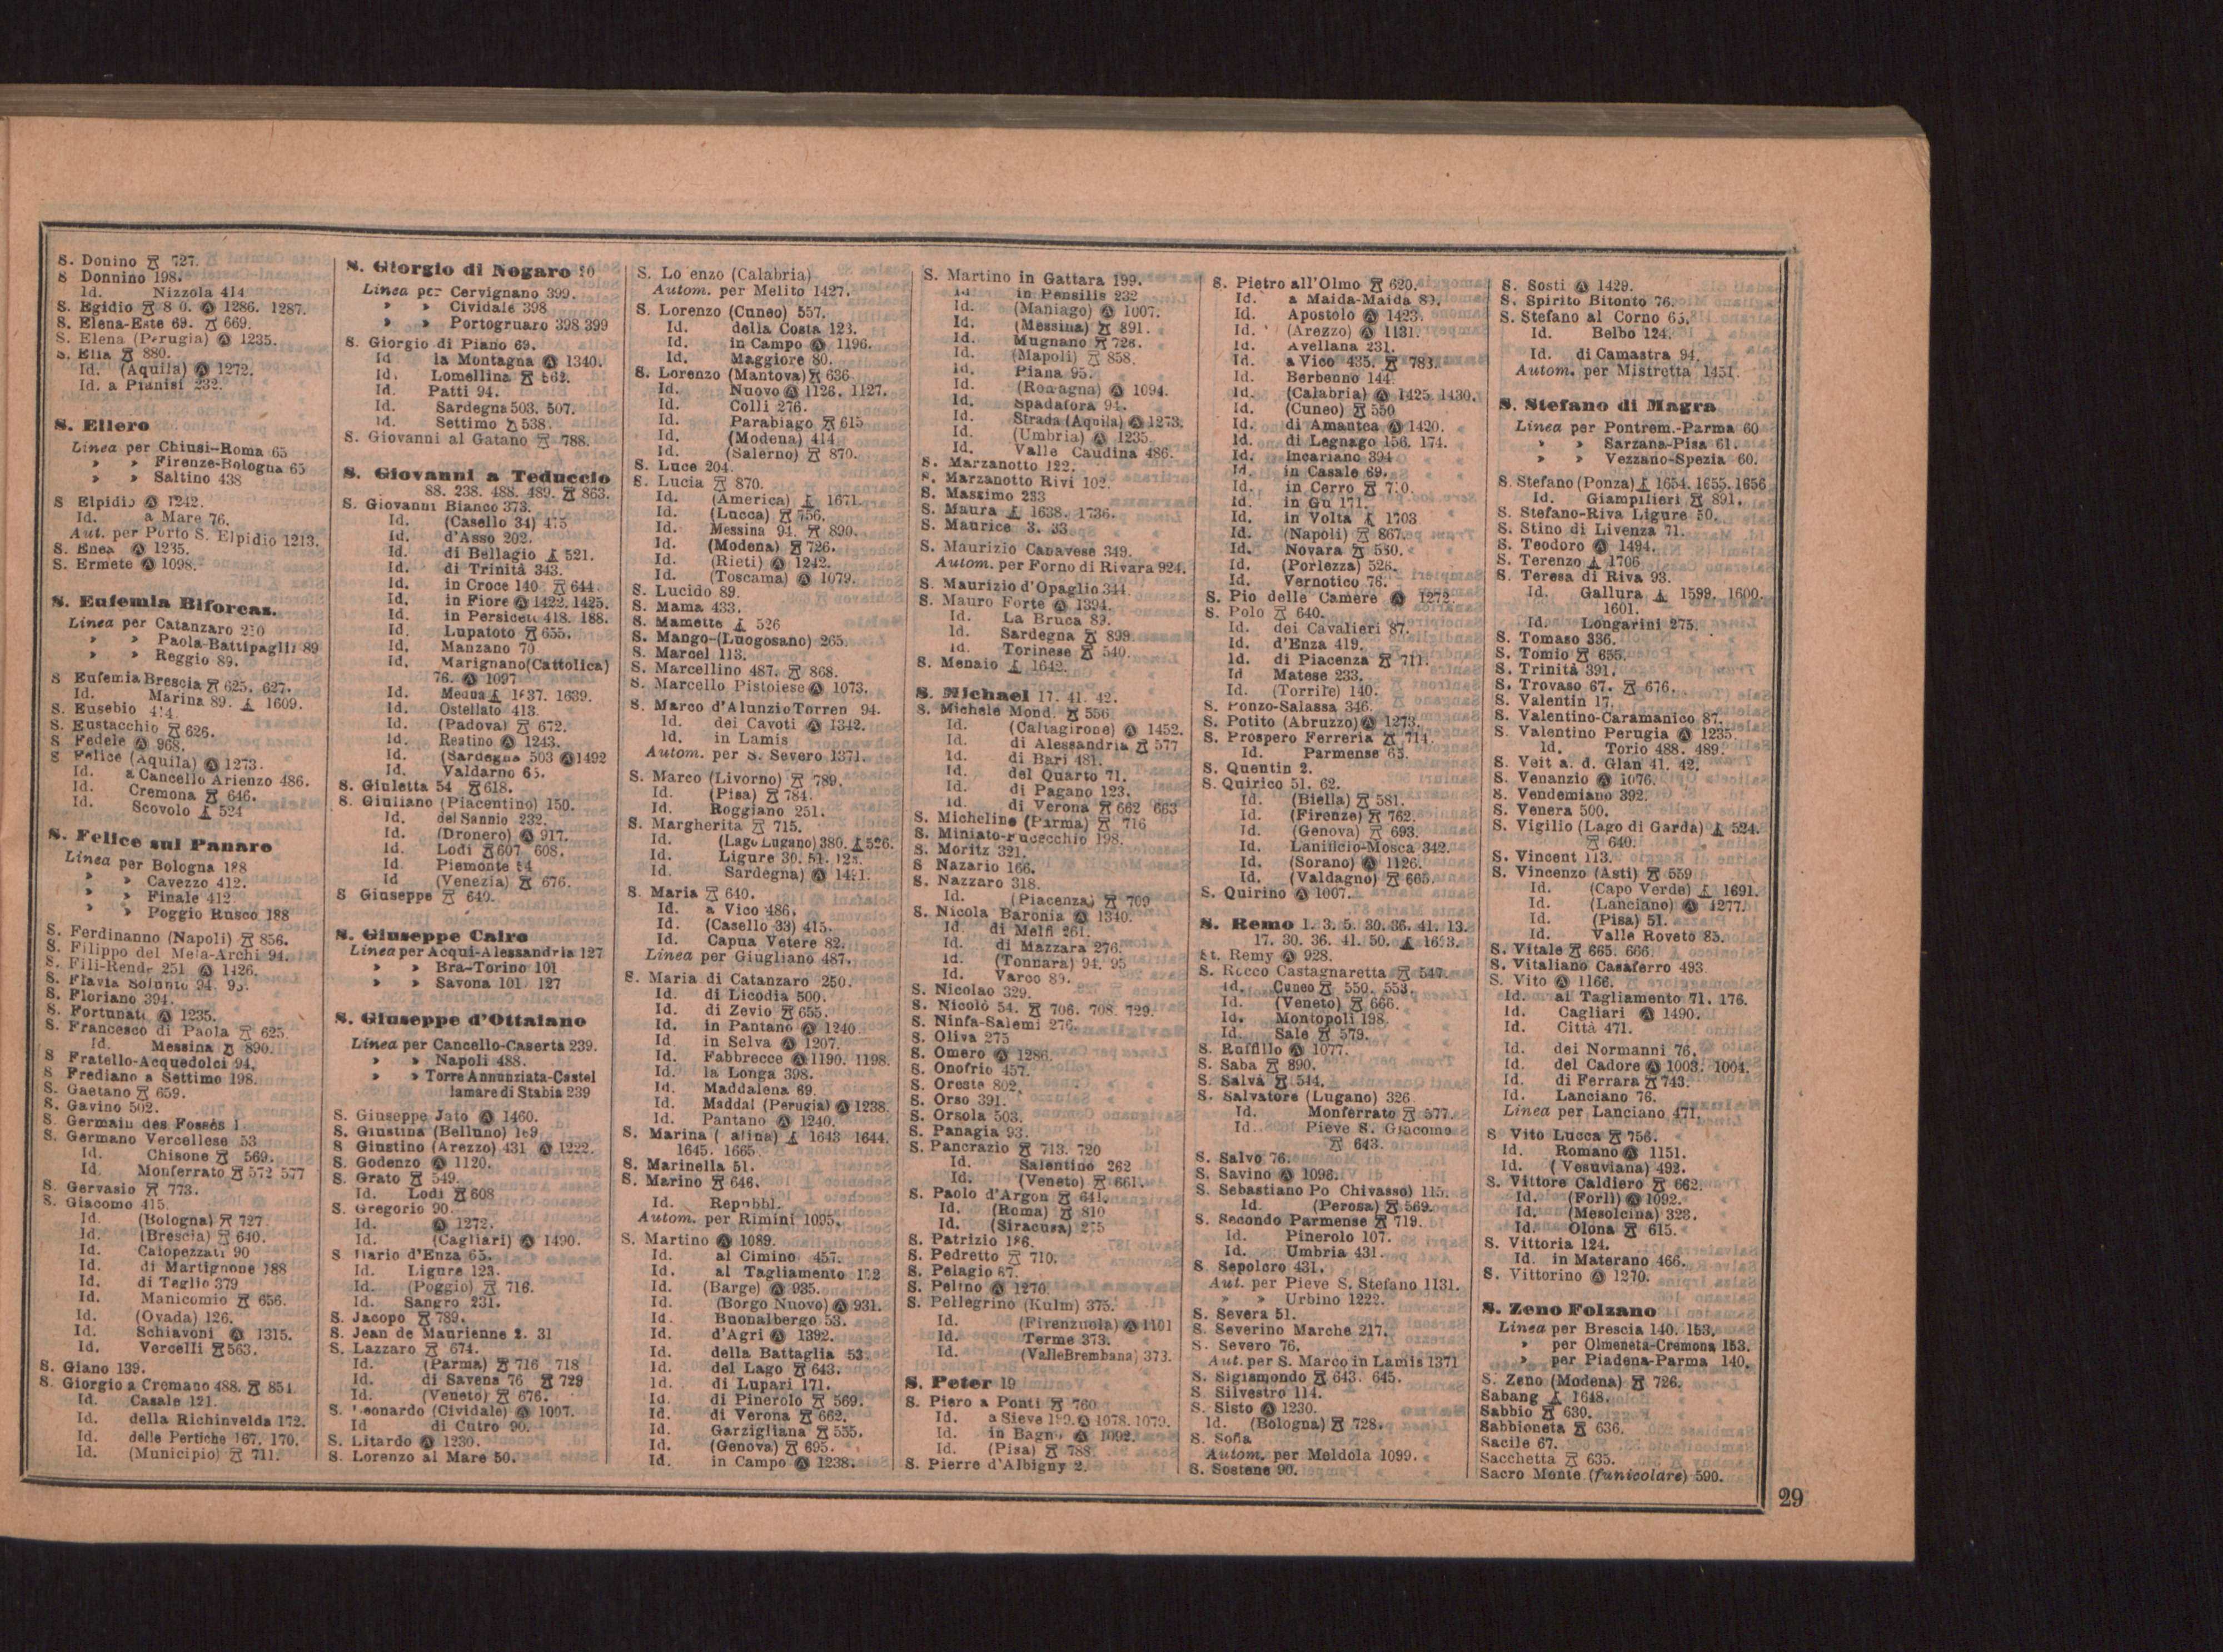 S. Donino 727.
S Donnino 198.
Id. Nizzola 414
S. Egidio 1286. 1287.
S. Elena-Este 69. 669.
S. Elena (Perugia) Ⓐ 1235.
S. Elia 880.
Id. (Aquila) Ⓐ 1272.
Id. a Pianisi 232.
S. Ellero
Linea per Chiusi-Roma 65
» » Firenze-Bologna 65
» » Saltino 438
S Elpidio Ⓐ 1242.
Id. a Mare 76.
Aut. per Porto S. Elpidio 1213.
S. Enea Ⓐ 1235.
S. Ermete Ⓐ 1098.
S. Eufemia Biforcas.
Linea per Catanzaro
» » Paola-Battipaglia 89
» » Reggio 89.
S Eufemia Brescia 625. 627.
Id. Marina 89. 1609.
S. Eusebio
S. Eustacchio 626.
S Fedele Ⓐ 968.
S Felice (Aquila) Ⓐ 1273.
Id. a Cancello Arienzo 486.
Id. Cremona 646.
Id. Scovolo 524
S. Felice sul Panaro
Linea per Bologna 188
» » Cavezzo 412.
» » Finale 412
» » Poggio Rusco 188
S. Ferdinanno (Napoli) 856.
S. Filippo del Mela-Archi 94.
S. Fili-Rende 251 Ⓐ 1426.
S. Flavia Solunto 94
S. Floriano 394.
S. Fortunato Ⓐ 1235.
S. Francesco di Paola 625.
Id. Messina 890.
S Fratello-Acquedolci 94.
S Frediano a Settimo 198.
S. Gaetano 659.
S. Gavino 502.
S Germain des Fossés 1
S. Germano Vercellese 53
Id. Chisone 569.
Id. Monferrato 572 577
S. Gervasio 773.
S. Giacomo 415.
Id. (Bologna) 727
Id. (Brescia) 640.
Id. Calopezzati 90
Id. di Martignone 188
Id. di Teglio 379
Id. Manicomio 656.
Id. (Ovada) 126.
Id. Schiavoni Ⓐ 1315.
Id. Vercelli 563.
S. Giano 139.
S. Giorgio a Cremano 488. 851
Id. Casale 121.
Id. della Richinvelda 172.
Id. delle Pertiche 167. 170.
Id. (Municipio) 711.
S. Giorgio di Nogaro
Linea per Cervignano 399.
» » Cividale 398
» » Portogruaro 398 399
S. Giorgio di Piano 69.
Id la Montagna Ⓐ 1340.
Id. Lomellina 562.
Id. Patti 94.
Id. Sardegna 503. 507.
Id. Settimo 538.
S. Giovanni al Gatano 788.
S. Giovanni a Teduccio
88. 238. 488. 489. 863.
S. Giovanni Bianco 373.
Id. (Casello 34) 415
Id. d'Asso 202.
Id. di Bellagio 521.
Id. di Trinità 343.
Id. in Croce 140 644.
Id. in Fiore Ⓐ 1422. 1425.
Id. in Persiceto 418. 188.
Id. Lupatoto 655.
Id. Manzano 70
Id. Marignano (Cattolica)
76. Ⓐ 1097
Id. Medua 1637. 1639.
Id. Ostellato 413.
Id. (Padova) 672.
Id. Reatino Ⓐ 1243.
Id. (Sardegna 503 Ⓐ 1492
Id. Valdarno 65.
S. Giuletta 54 618.
S. Giuliano (Piacentino) 150.
Id. del Sannio 232.
Id. (Dronero) Ⓐ 917.
Id. Lodi 607 608.
Id Piemonte
Id (Venezia) 676.
S Giuseppe 640.
S. Giuseppe Cairo
Linea per Acqui-Alessandria 127
» » Bra-Torino 101
» » Savona 101 127
S. Giuseppe d'Ottaiano
Linea per Cancello-Caserta 239.
» » Napoli 488.
» » Torre Annunziata-Castel
lamare di Stabia 239
S. Giuseppe Jato Ⓐ 1460.
S. Giustina (Belluno) 169
S Giustino (Arezzo) 431 Ⓐ 1222.
S. Godenzo Ⓐ 1120.
S. Grato 549.
Id. Lodi 608
S. Gregorio 90.
Id. Ⓐ 1272.
Id. (Cagliari) Ⓐ 1490.
S Ilario d'Enza 65.
Id. Ligure 123.
Id. (Poggio) 716.
Id. Sangro 231.
S. Jacopo 789.
S. Jean de Maurienne 2. 31
S. Lazzaro 674.
Id. (Parma) 716 718
Id. di Savena 76 729
Id. (Veneto) 676.
S. Leonardo (Cividale) Ⓐ 1007.
Id di Cutro 90.
S. Litardo Ⓐ 1230.
S. Lorenzo al Mare 50.
S. Lo enzo (Calabria)
Autom. per Melito 1427.
S. Lorenzo (Cuneo) 557.
Id. della Costa 123.
Id. in Campo Ⓐ 1196.
Id. Maggiore 80.
S. Lorenzo (Mantova) 636
Id. Nuovo Ⓐ 1126. 1127.
Id. Colli 276.
Id. Parabiago 615
Id. (Modena) 414
Id. (Salerno) 870.
S. Luce 204.
S. Lucia 870.
Id. (America) 1671.
Id. (Lucca) 756.
Id. Messina 94. 890.
Id. (Modena) 726.
Id. (Rieti) Ⓐ 1242.
Id. (Toscama) Ⓐ 1079.
S. Lucido 89.
S. Mama 433.
S. Mamette 526
S. Mango-(Luogosano) 265.
S. Marcel 113.
S. Marcellino 487. 868.
S. Marcello Pistoiese Ⓐ 1073.
S. Marco d'Alunzio Torren 94.
Id. dei Cavoti Ⓐ 1342.
Id. in Lamis
Autom. per S. Severo 1371.
S. Marco (Livorno) 789.
Id. (Pisa) 784.
Id. Roggiano 251.
S. Margherita 715.
Id. (Lago Lugano) 380. 526.
Id. Ligure 30. 51. 123.
Id. Sardegna) Ⓐ
S. Maria 640.
Id. a Vico 486.
Id. (Casello 33) 415.
Id. Capua Vetere 82.
Linea per Giugliano 487.
S. Maria di Catanzaro 250.
Id. di Licodia 500.
Id. di Zevio 655.
Id. in Pantano Ⓐ 1240
Id. in Selva Ⓐ 1207.
Id. Fabbrecce Ⓐ 1190. 1198.
Id. la Longa 398.
Id. Maddalena 69.
Id. Maddal (Perugia) Ⓐ 1238.
Id. Pantano Ⓐ 1240.
S. Marina ( alina) 1643 1644.
1645. 1665.
S. Marinella 51.
S. Marino 646.
Id. Repubbl.
Autom. per Rimini 1095.
S. Martino Ⓐ 1089.
Id. al Cimino 457.
Id. al Tagliamento
Id. (Barge) Ⓐ 935.
Id. (Borgo Nuovo) Ⓐ 931.
Id. Buonalbergo 53.
Id. d'Agri Ⓐ 1392.
Id. della Battaglia 53.
Id. del Lago 643.
Id. di Lupari 171.
Id. di Pinerolo 569.
Id. di Verona 662.
Id. Garzigliana 555.
Id. (Genova) 695.
Id. in Campo Ⓐ 1238.
S. Martino in Gattara 199.
Id. in Pensilis 232
Id. (Maniago) Ⓐ 1007.
Id. (Messina) 891.
Id. Mugnano 726.
Id. (Mapoli) 858.
Id. Piana 95.
Id. (Romagna) Ⓐ 1094.
Id. Spadafora 94.
Id. Strada (Aquila) Ⓐ 1273.
Id. (Umbria) Ⓐ 1235.
Id. Valle Caudina 486.
S. Marzanotto 122.
S. Marzanotto Rivi 102.
S. Massimo 233
S. Maura 1638. 1736.
S. Maurice 3. 33
S. Maurizio Canavese 349.
Autom. per Forno di Rivara 924.
S. Maurizio d'Opaglio 344
S. Mauro Forte Ⓐ 1394.
Id. La Bruca 89.
Id. Sardegna 899
Id. Torinese 540.
S. Menaio 1642.
S. Michael 17. 41. 42.
S. Michele Mond. 556
Id. (Caltagirone) Ⓐ 1452.
Id. di Alessandria 577
Id. di Bari 481.
Id. del Quarto 71.
Id. di Pagano 123.
Id. di Verona 662 663
S. Micheline (Parma) 716
S. Miniato-Fucecchio 198.
S. Moritz 321.
S Nazario 166.
S. Nazzaro 318.
Id. (Piacenza) 709
S. Nicola Baronia Ⓐ 1340.
Id. di Melfi 261.
Id. di Mazzara 276.
Id. (Tonnara) 94. 95
Id. Varco 89.
S. Nicolao 329.
S. Nicolò 54. 706. 708. 729.
S. Ninfa-Salemi 276.
S. Oliva 275
S. Omero Ⓐ 1286.
S. Onofrio 457.
S. Oreste 802.
S. Orso 391.
S. Orsola 503.
S. Panagia 93.
S. Pancrazio 713. 720
Id. Salentino 262
Id. (Veneto) 661.
S. Paolo d'Argon 641.
Id. (Roma) 810
Id. (Siracusa) 275
S. Patrizio 186.
S. Pedretto 710.
S. Pelagio 67.
S. Pelino Ⓐ 1270.
S. Pellegrino (Kulm) 375.
Id. (Firenzuola) Ⓐ 1101
Id. Terme 373.
Id. (Valle Brembana) 373.
S. Peter 19
S. Piero a Ponti 760
Id. a Sieve Ⓐ 1078. 1079.
Id. in Bagno Ⓐ 1092.
Id. (Pisa) 788
S. Pierre d'Albigny 2.
S. Pietro all'Olmo 620.
Id. a Maida-Maida 89.
Id. Apostolo Ⓐ 1423.
Id. (Arezzo) Ⓐ 1131.
Id. Avellana 231.
Id. a Vico 435. 783.
Id. Berbenno 144.
Id. (Calabria) Ⓐ 1425. 1430.
Id. (Cuneo) 550
Id. di Amantea Ⓐ 1420.
Id. di Legnago 156. 174.
Id. Incariano 394
Id. in Casale 69.
Id. in Cerro
Id. in Gu 171.
Id. in Volta 1703
Id. (Napoli) 867.
Id. Novara 580.
Id. (Porlezza) 526.
Id. Vernotico 76.
S. Pio delle Camere Ⓐ 1272.
S. Polo 640.
Id. dei Cavalieri 87.
Id. d'Enza 419.
Id. di Piacenza 711.
Id Matese 233.
Id. (Torrile) 140.
S. Ponzo-Salassa 346.
S. Potito (Abruzzo) Ⓐ 1273.
S. Prospero Ferreria 714.
Id. Parmense 65.
S. Quentin 2.
S. Quirico 51. 62.
Id. (Biella) 581.
Id. (Firenze) 762.
Id. (Genova) 693.
Id. Lanificio-Mosca 342.
Id. (Sorano) Ⓐ 1126.
Id. (Valdagno) 665.
S. Quirino Ⓐ 1007.
S. Remo 1. 3. 5. 30. 36. 41. 13.
17. 30. 36. 41. 50.
St. Remy Ⓐ 928.
S. Rocco Castagnaretta 547.
Id. Cuneo 550. 553.
Id. (Veneto) 666.
Id. Montopoli 198
Id. Sale 579.
S. Ruffillo Ⓐ 1077.
S. Saba 890.
S. Salvà 544.
S. Salvatore (Lugano) 326
Id. Monferrato 577.
Id. Pieve S. Giacomo
643.
S. Salvo 76.
S. Savino Ⓐ 1096.
S. Sebastiano Po Chivasso) 115.
Id. (Perosa) 569.
S. Secondo Parmense 719.
Id. Pinerolo 107.
Id. Umbria 431.
S Sepolcro 431.
Aut. per Pieve S. Stefano 1131.
» » Urbino 1222.
S. Severa 51.
S. Severino Marche 217.
S. Severo 76.
Aut. per S. Marco in Lamis 1371
S. Sigismondo 643. 645.
S Silvestro 114.
S. Sisto Ⓐ 1230.
Id. (Bologna) 728.
S. Sofia
Autom. per Meldola 1099.
S. Sostene 90.
S. Sosti Ⓐ 1429.
S. Spirito Bitonto 76.
S. Stefano al Corno 65.
Id. Belbo 124.
Id. di Camastra 94.
Autom. per Mistretta 1451
S. Stefano di Magra
Linea per Pontrem.-Parma 60
» » Sarzana-Pisa 61.
» » Vezzano-Spezia 60.
S. Stefano (Ponza) 1654. 1655. 1656
Id. Giampilieri 891.
S. Stefano-Riva Ligure 50.
S. Stino di Livenza 71.
S. Teodoro Ⓐ 1494.
S. Terenzo 1706
S. Teresa di Riva 93.
Id. Gallura 1599. 1600.
1601.
Id. Longarini 275.
S. Tomaso 336.
S. Tomio 655.
S. Trinità 391.
S. Trovaso 67. 676.
S. Valentin 17.
S. Valentino-Caramanico 87.
S. Valentino Perugia Ⓐ 1235
Id. Torio 488. 489.
S. Veit a. d. Glan 41. 42.
S. Venanzio Ⓐ 1076.
S. Vendemiano 392.
S. Venera 500.
S. Vigilio (Lago di Garda) 524.
640.
S. Vincent 113.
S. Vincenzo (Asti) 559
Id. (Capo Verde) 1691.
Id. (Lanciano) Ⓐ 1277.
Id. (Pisa) 51.
Id. Valle Roveto 85.
S. Vitale 665. 666.
S. Vitaliano Casaferro 493
S. Vito Ⓐ 1166.
Id. al Tagliamento 71. 176.
Id. Cagliari Ⓐ 1490.
Id. Città 471.
Id. dei Normanni 76.
Id. del Cadore Ⓐ 1003. 1004.
Id. di Ferrara 743.
Id. Lanciano 76.
Linea per Lanciano 471.
S Vito Lucca 756.
Id. Romano Ⓐ 1151.
Id. (Vesuviana) 492.
S. Vittore Caldiero 662.
Id. (Forlì) Ⓐ 1092.
Id. (Mesolcina) 323.
Id. Olona 615.
S. Vittoria 124.
Id. in Materano 466.
S. Vittorino Ⓐ 1270.
S. Zeno Folzano
Linea per Brescia 140. 153.
» per Olmeneta-Cremona 153.
» per Piadena-Parma 140.
S. Zeno (Modena) 726.
Sabang 1648.
Sabbio 630.
Sabbioneta 636.
Sacile 67.
Sacchetta 635.
Sacro Monte (funicolare) 590.
29